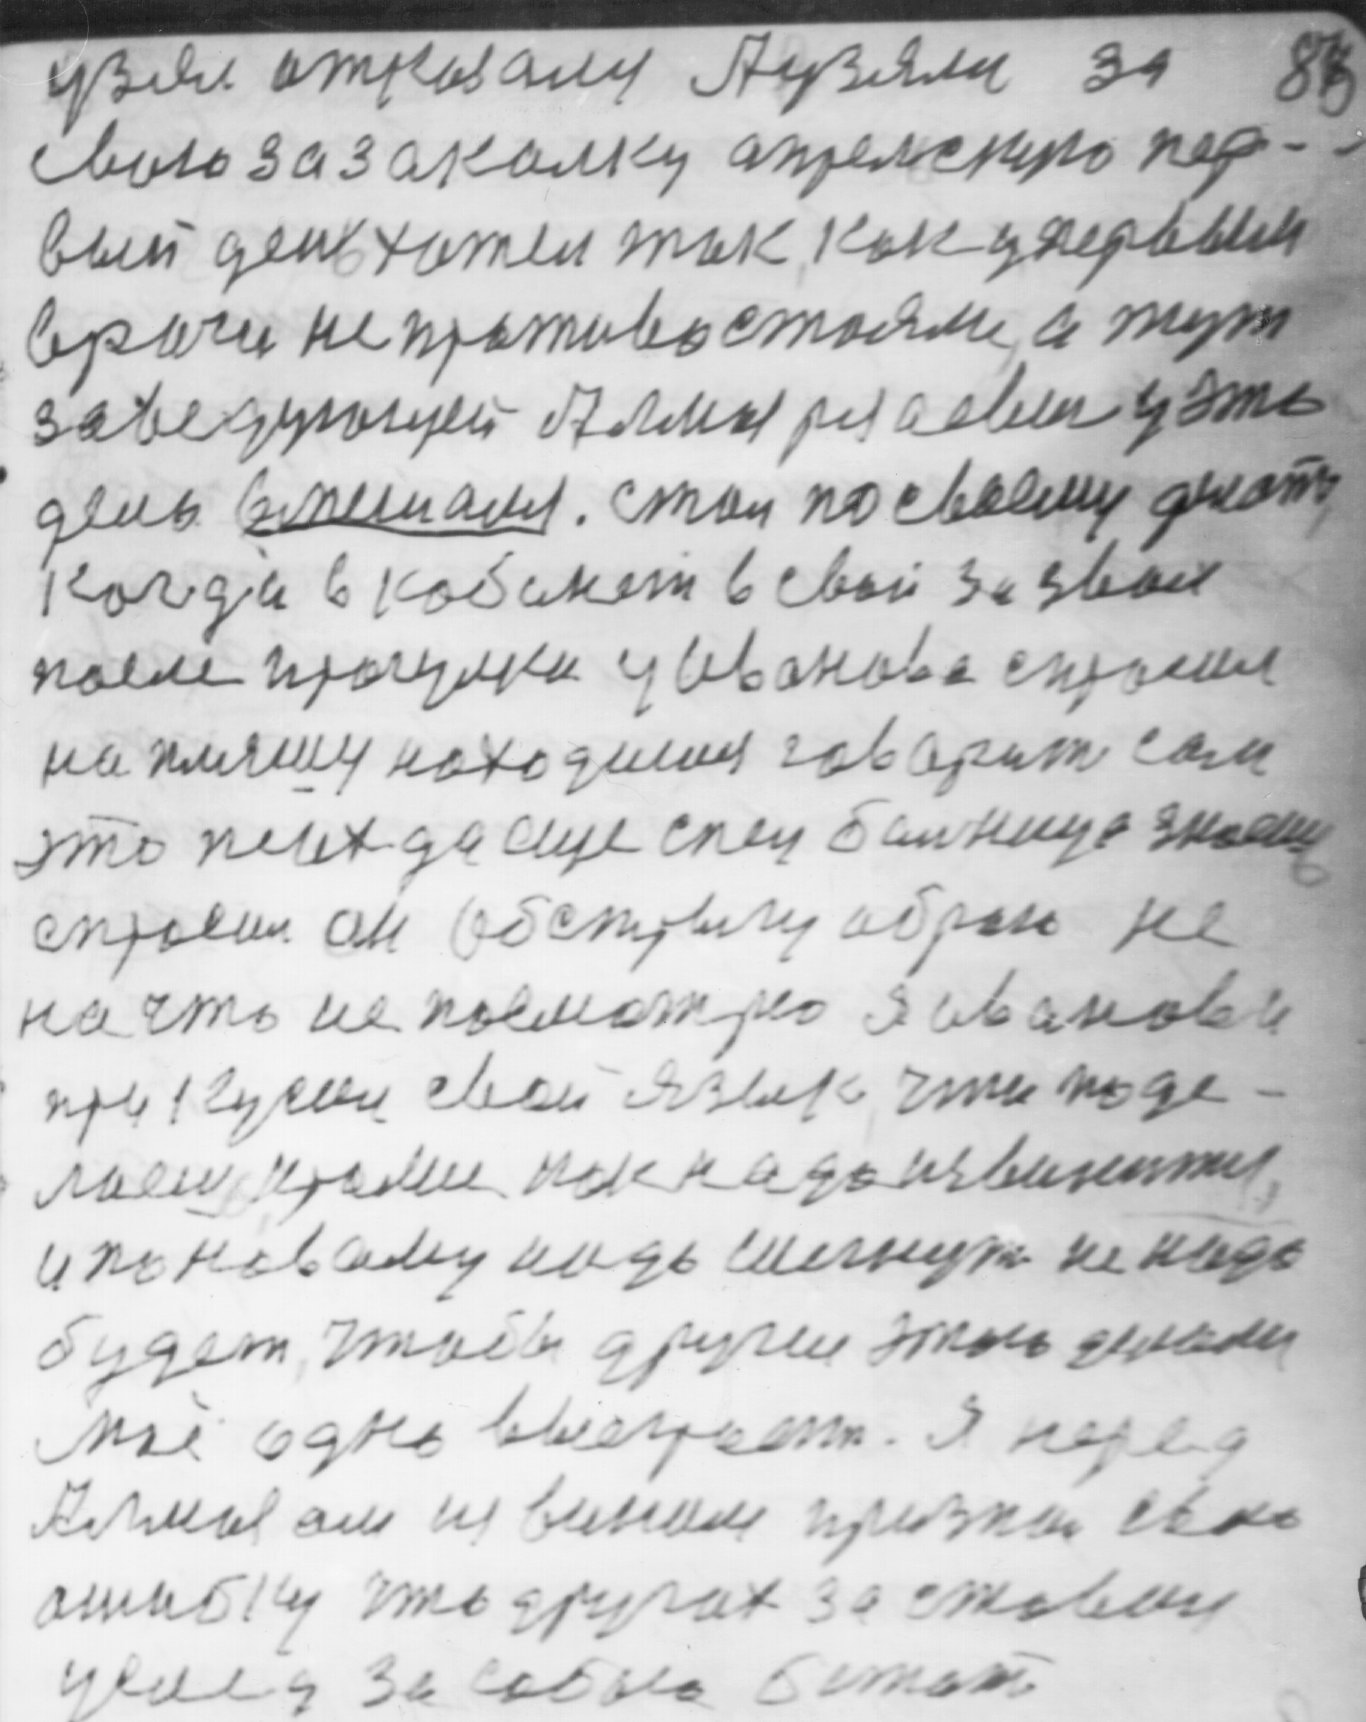 за 87
свою за заколку апрельскую пер-
вый день хотел так, как у первым
врачи не противостояли, а тут
заведующей Алмаз у это
день вмешался. стал по своему делать,
когда в кабинет в свой зазвал
после прогулки у Иванова спросил
на пляшу находился говорит сам
это псих да еще спец больница знаешь
спросил он обстригу обрею не
на что не посмотрю я Иванов и
прикусил свой язык, что поде-
лаешь, прали как надо извинится,
и по новому надо шагнут не надо
будет, чтобы другие этого делали
моё одно выстроет. Я перед
извинам признал свою
ошибку что других заставил
услед за собою бежат